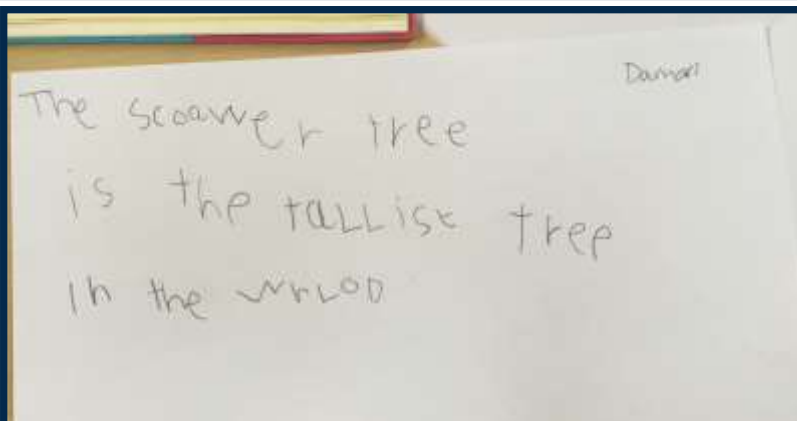 Damari
The scoawer tree
is the tallist tree
in the wrlod